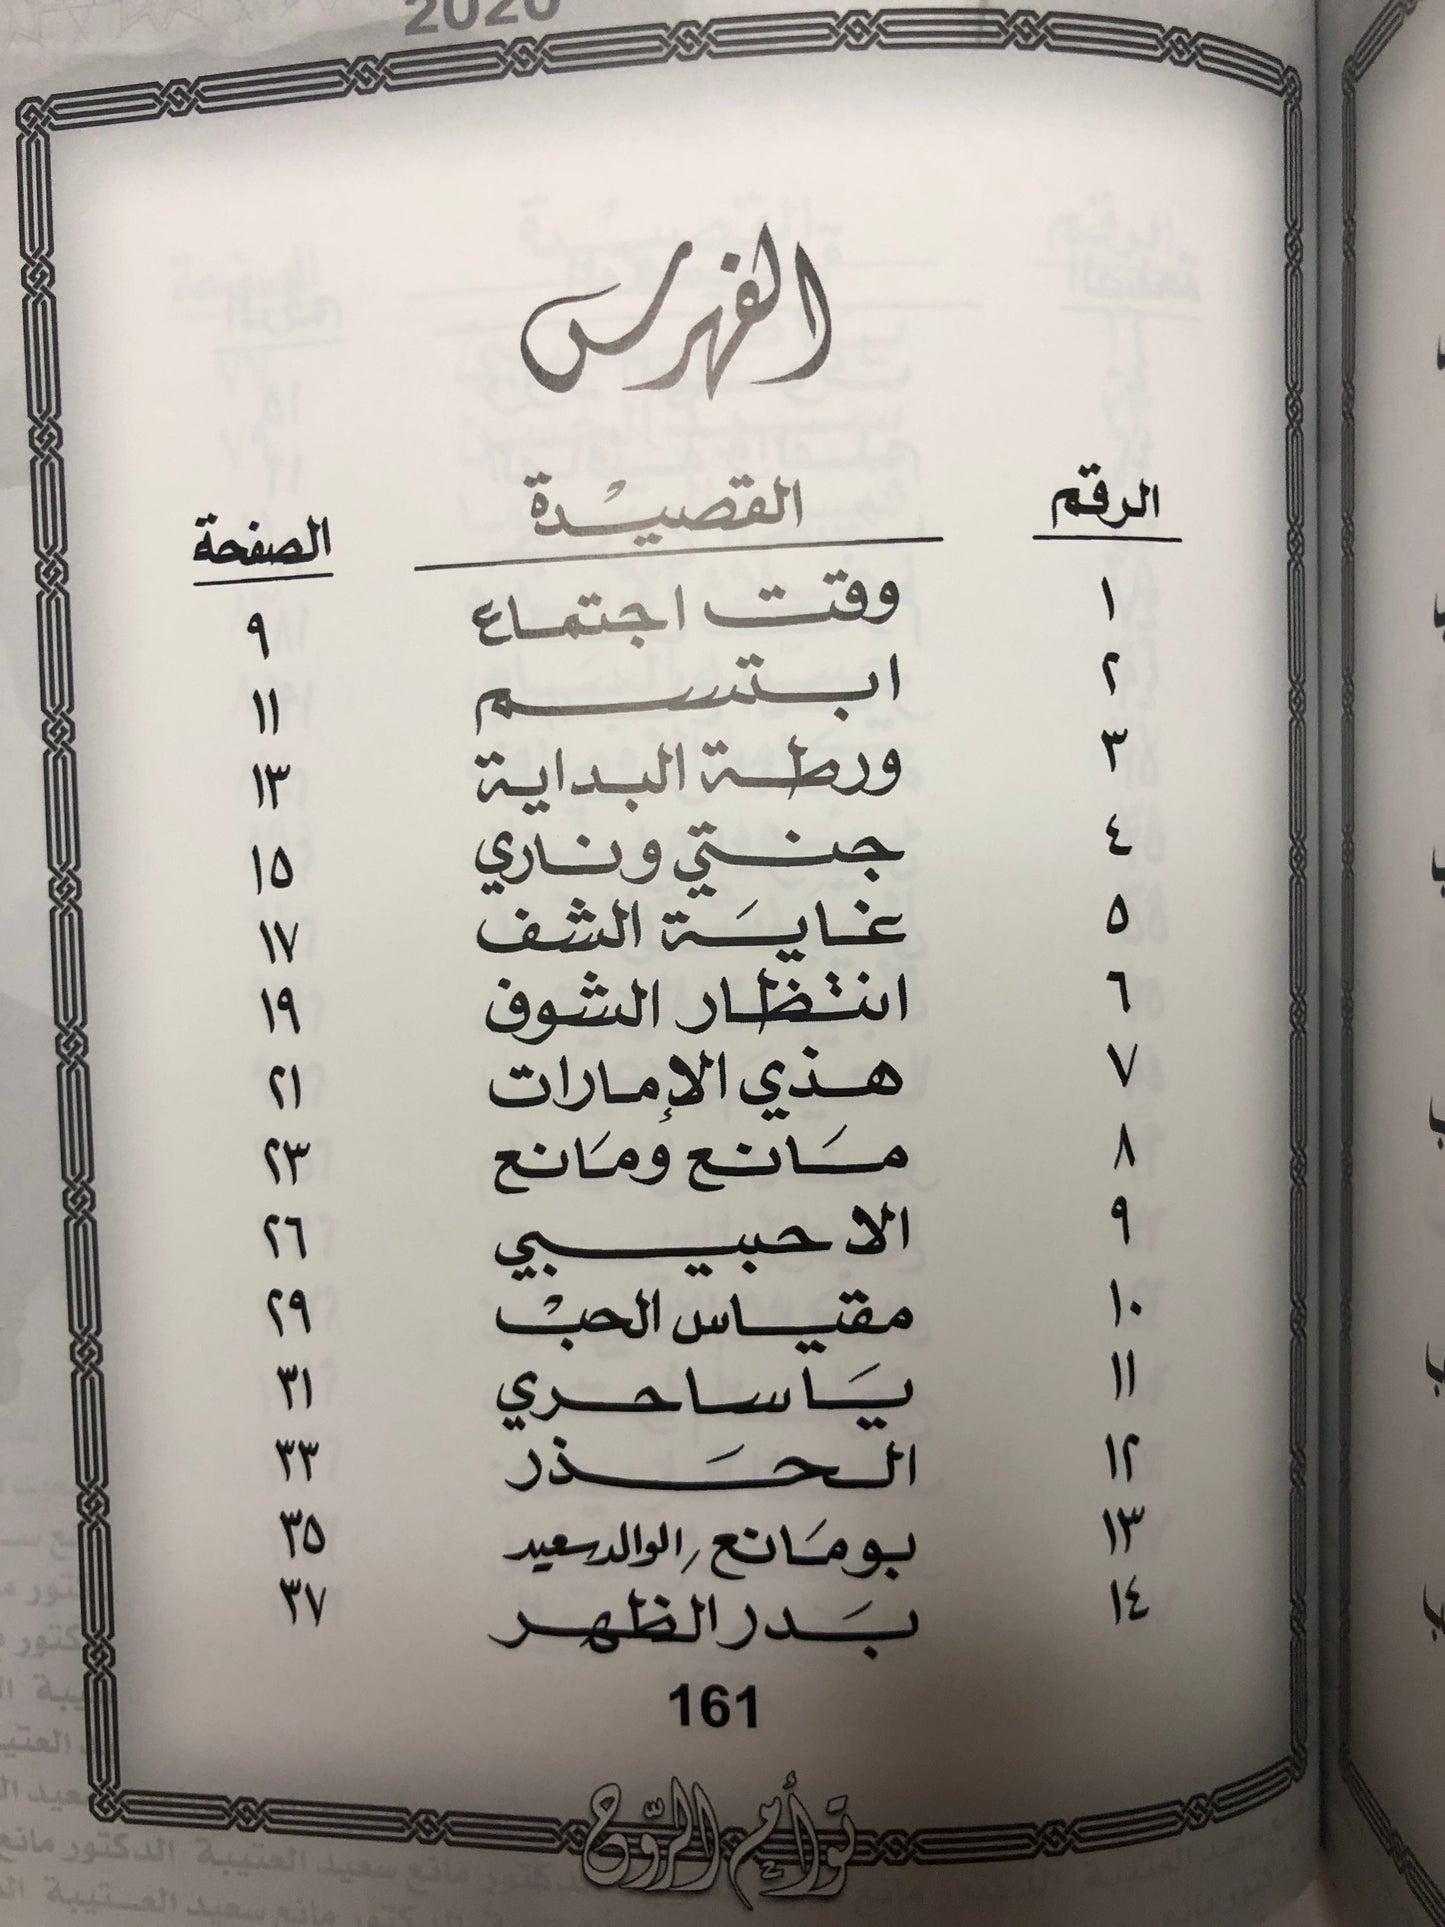 2020
الفهرس
الرقم القصيدة الصفحة
١ وقت اجتماع ٩
٢ ابتسم ١١
٣ ورطة البداية ١٣
٤ جنتي وناري ١٥
٥ غاية الشف ١٧
٦ انتظار الشوف ١٩
٧ هذي الإمارات ٢١
٨ مانع ومانع ٢٣
٩ الا حبيبي ٢٦
١٠ مقياس الحبْ ٢٩
١١ يا ساحري ٣١
١٢ الحذر ٣٣
١٣ بومانع / الوالد سعيد ٣٥
١٤ بدر الظهر ٣٧
161
توأم الرّوح